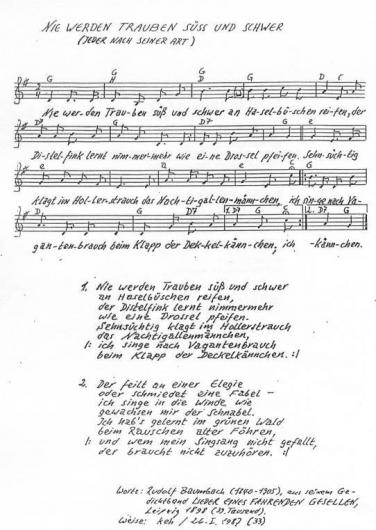 NIE WERDEN TRAUBEN SÜSS UND SCHWER
(JEDER NACH SEINER ART)
Nie wer-den Trau-ben süß und schwer an Ha-sel-bü-schen rei-fen, der
Di-stel-fink lernt nim-mer-mehr wie ei-ne Dros-sel pfei-fen. Sehn-süch-tig
klagt im Hol-ler-strauch das Nach-ti-gal-len-männ-chen, ich sin-ge nach Va-
gan-ten-brauch beim Klapp der Dek-kel-känn-chen, ich -känn-chen.
1. Nie werden Trauben süß und schwer
an Haselbüschen reifen,
der Distelfink lernt nimmermehr
wie eine Drossel pfeifen.
Sehnsüchtig klagt im Hollerstrauch
das Nachtigallenmännchen,
|: ich singe nach Vagantenbrauch
beim Klapp der Deckelkännchen. :|
2. Der feilt an einer Elegie
oder schmiedet eine Fabel –
ich singe in die Winde wie
gewachsen mir der Schnabel.
Ich hab's gelernt im grünen Wald
beim Rauschen alter Föhren,
|: und wem mein Singsang nicht gefällt,
der braucht nicht zuzuhören. :|
Worte: Rudolf Baumbach (1840-1905), aus seinem Ge-
dichtband LIEDER EINES FAHRENDEN GESELLEN,
Leipzig 1898 Tausend).
Weise: keh / 26.I.1987 (33)